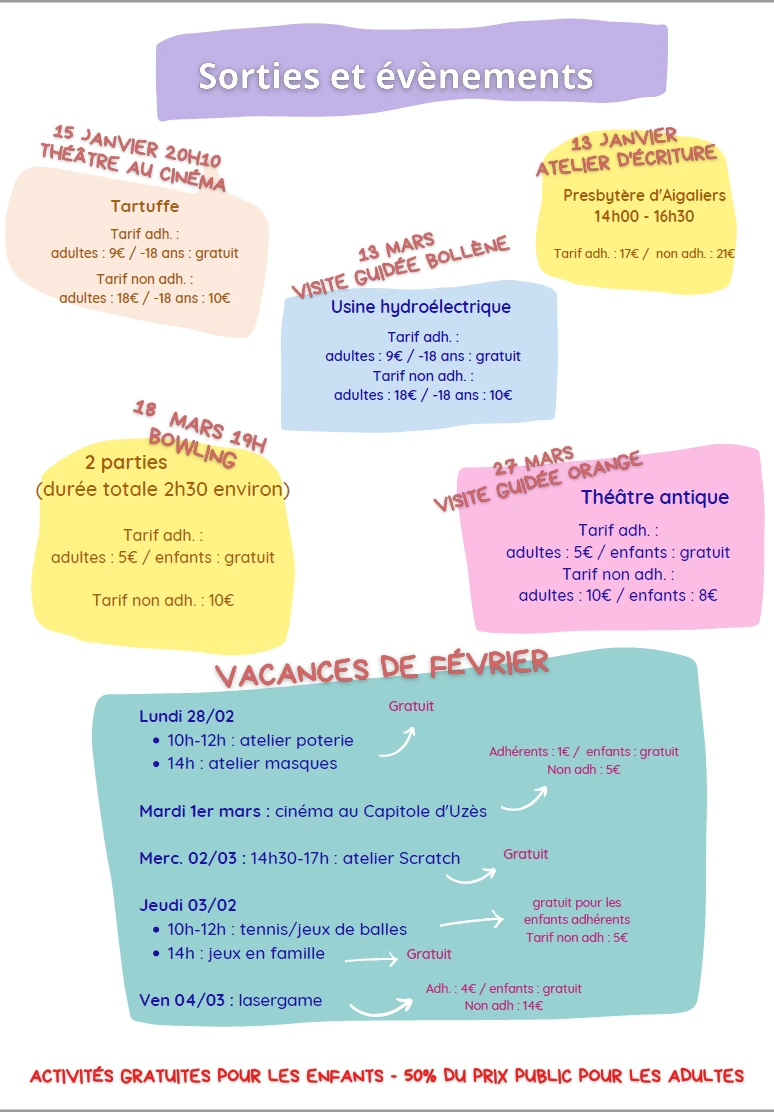 Sorties et évènements
15 JANVIER 20H10
THÉÂTRE AU CINÉMA
Tartuffe
Tarif adh. :
adultes : 9€ / -18 ans : gratuit
Tarif non adh. :
adultes : 18€ / -18 ans : 10€
13 JANVIER
ATELIER D'ÉCRITURE
Presbytère d'Aigaliers
14h00 - 16h30
Tarif adh. : 17€ / non adh. : 21€
13 MARS
VISITE GUIDÉE BOLLÈNE
Usine hydroélectrique
Tarif adh. :
adultes : 9€ / -18 ans : gratuit
Tarif non adh. :
adultes : 18€ / -18 ans : 10€
18 MARS 19H
BOWLING
2 parties
(durée totale 2h30 environ)
Tarif adh. :
adultes : 5€ / enfants : gratuit
Tarif non adh. : 10€
27 MARS
VISITE GUIDÉE ORANGE
Théâtre antique
Tarif adh. :
adultes : 5€ / enfants : gratuit
Tarif non adh. :
adultes : 10€ / enfants : 8€
VACANCES DE FÉVRIER
Lundi 28/02
Gratuit
• 10h-12h : atelier poterie
• 14h : atelier masques
Adhérents : 1€ / enfants : gratuit
Non adh : 5€
Mardi 1er mars : cinéma au Capitole d'Uzès
Merc. 02/03 : 14h30-17h : atelier Scratch
Gratuit
Jeudi 03/02
• 10h-12h : tennis/jeux de balles
gratuit pour les
enfants adhérents
Tarif non adh : 5€
• 14h : jeux en famille
Gratuit
Ven 04/03 : lasergame
Adh. : 4€ / enfants : gratuit
Non adh : 14€
ACTIVITÉS GRATUITES POUR LES ENFANTS - 50% DU PRIX PUBLIC POUR LES ADULTES